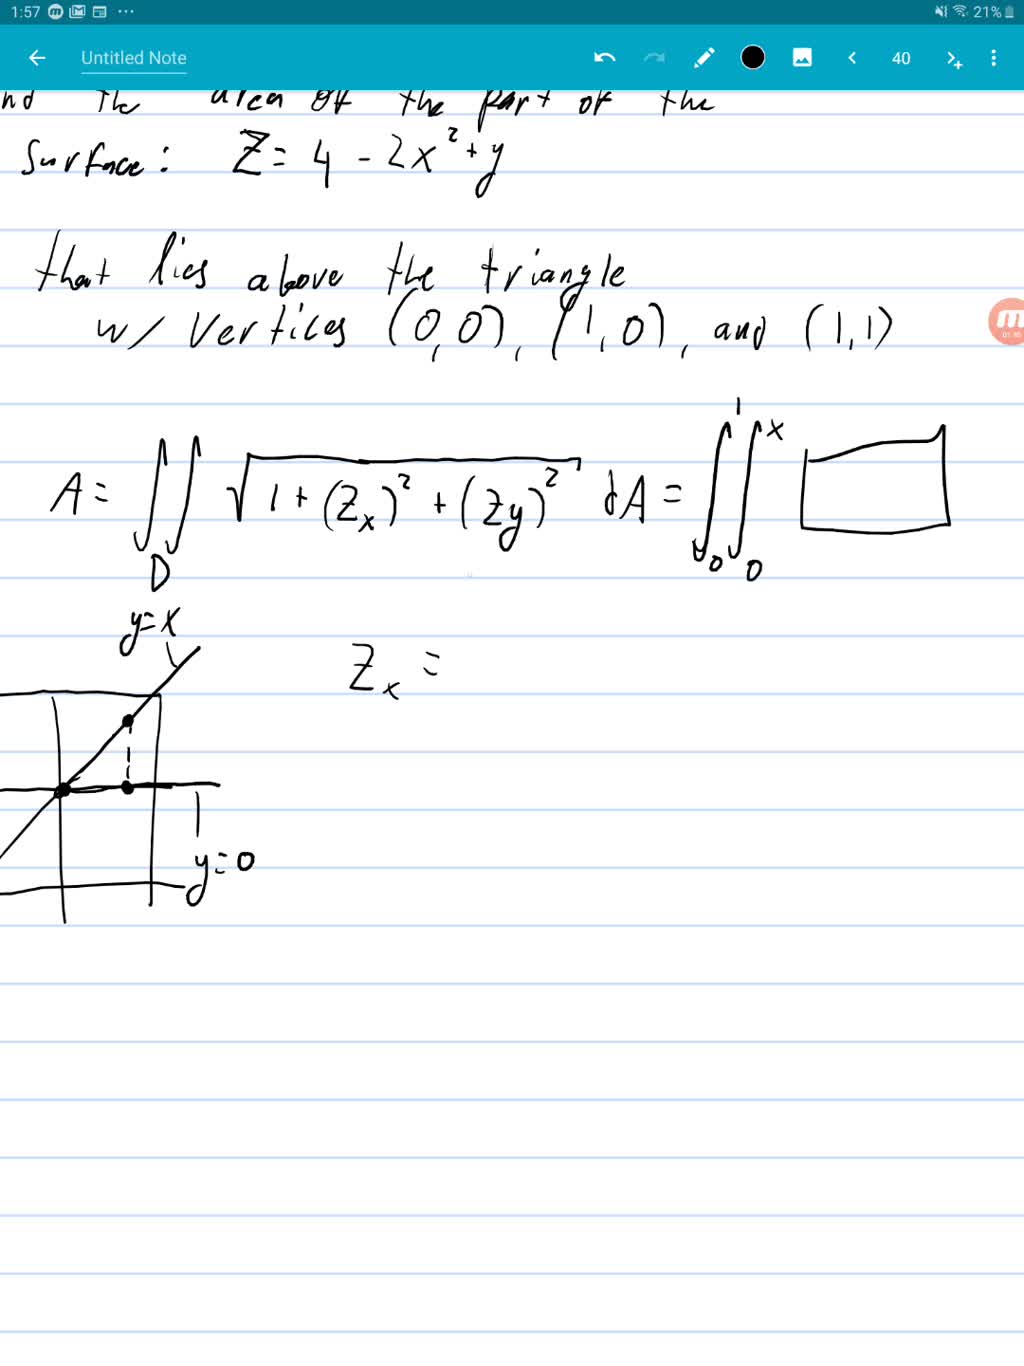 1:57 21%
Untitled Note 40
nd the area of the part of the
Surface: Z = 4 - 2x² + y
that lies above the triangle
w/ vertices (0,0), (1,0), and (1,1)
A = ∬_D √(1 + (Z_x)² + (Z_y)²) dA = ∫₀¹ ∫₀ˣ
y=x
Z_x =
y=0